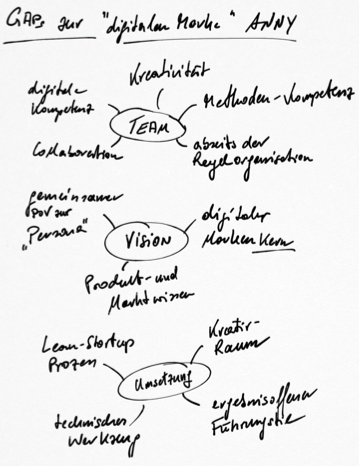 GAPs zur "digitalen Marke" ANNY
Kreativität
digitale
Kompetenz
Methoden-Kompetenz
TEAM
Collaboration
abseits der
Regelorganisation
gemeinsamer
POV zur
"Persona"
digitaler
Markenkern
VISION
Produkt- und
Marktwissen
Lean-Startup
Prozess
Kreativ-
Raum
Umsetzung
technisches
Werkzeug
ergebnisoffener
Führungsstil